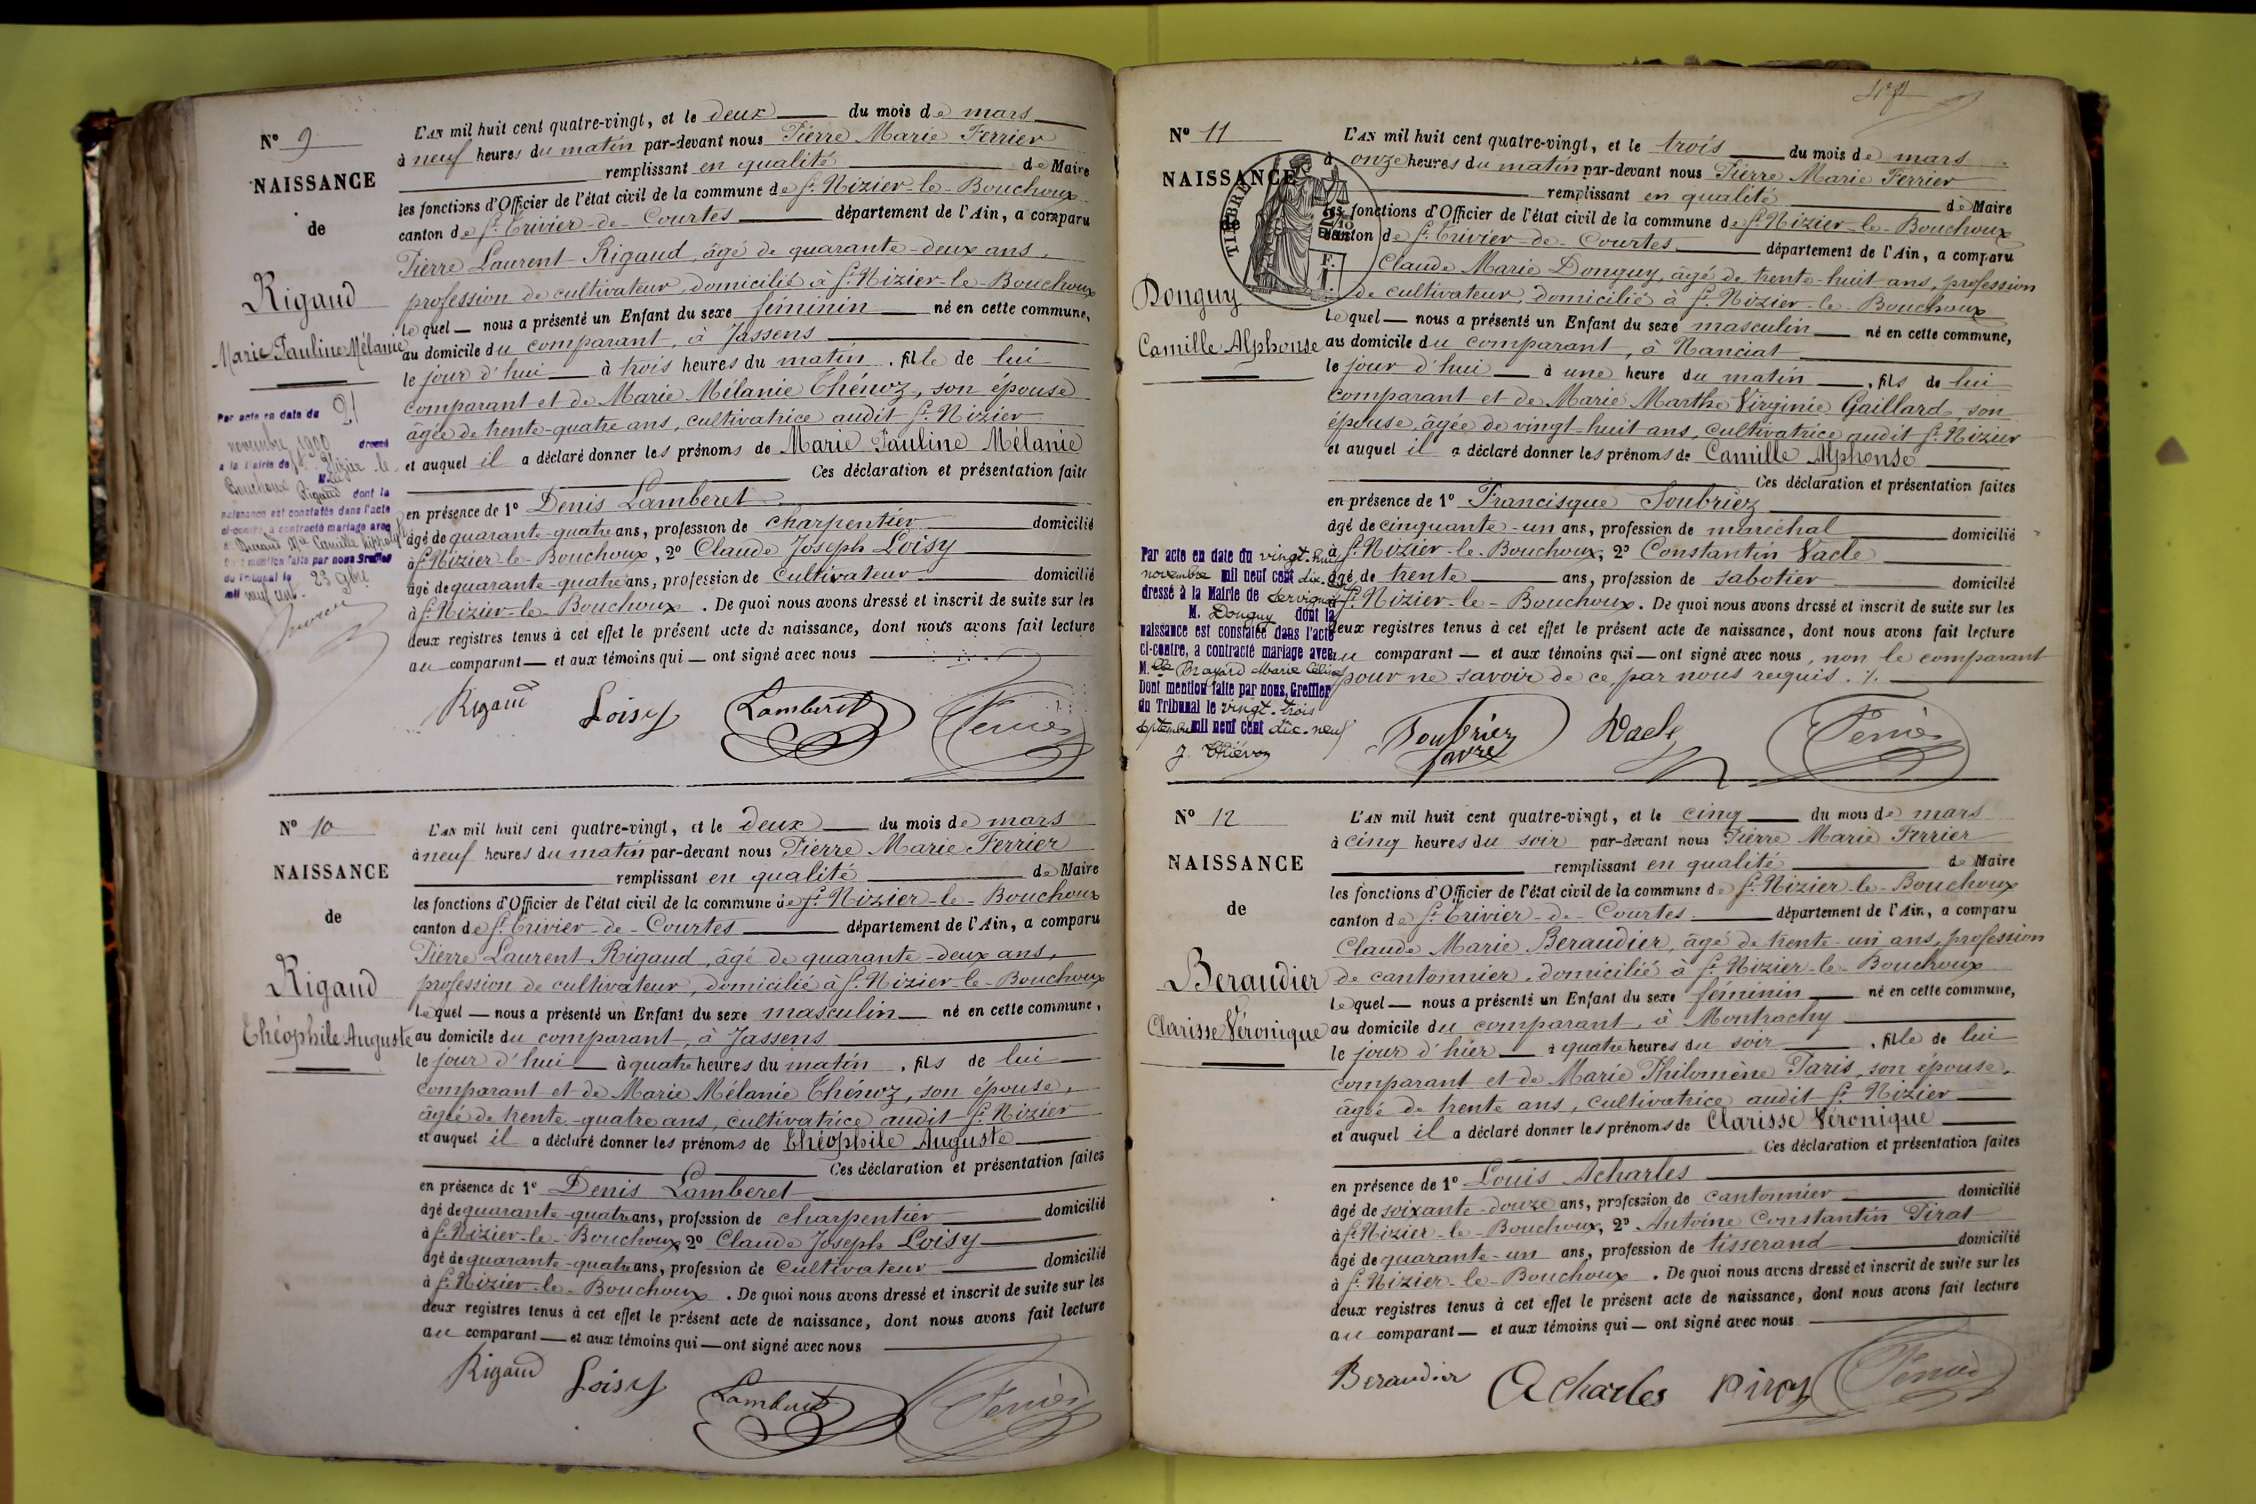 N° 9
NAISSANCE
de
Rigaud
Marie Pauline Mélanie
Par acte en date du 21
novembre 1900 dressé
à la Mairie de St Nizier-le-
Bouchoux Mlle
Rigaud dont la
naissance est constatée dans l'acte
ci-contre, a contracté mariage avec
Camille
Dont mention faite par nous Greffier
du Tribunal le 23 9bre
mil neuf cent.
L'AN mil huit cent quatre-vingt, et le deux du mois de mars
à neuf heures du matin par-devant nous Pierre Marie Ferrier
remplissant en qualité de Maire
les fonctions d'Officier de l'état civil de la commune de St. Nizier-le-Bouchoux
canton de St. Trivier-de-Courtes département de l'Ain, a comparu
Pierre Laurent Rigaud, âgé de quarante-deux ans,
profession de cultivateur, domicilié à St. Nizier-le-Bouchoux
lequel nous a présenté un Enfant du sexe féminin né en cette commune,
au domicile du comparant, à Jassens
le jour d'hui à trois heures du matin, fille de lui
comparant et de Marie Mélanie Thénoz, son épouse
âgée de trente-quatre ans, cultivatrice audit St. Nizier
et auquel il a déclaré donner les prénoms de Marie Pauline Mélanie
Ces déclaration et présentation faites
en présence de 1° Denis Lamberet
âgé de quarante-quatre ans, profession de charpentier domicilié
à St. Nizier-le-Bouchoux, 2° Claude Joseph Loisy
âgé de quarante-quatre ans, profession de cultivateur domicilié
à St. Nizier-le-Bouchoux. De quoi nous avons dressé et inscrit de suite sur les
deux registres tenus à cet effet le présent acte de naissance, dont nous avons fait lecture
au comparant et aux témoins qui ont signé avec nous
Rigaud Loisy Lamberet Ferrier
N° 10
NAISSANCE
de
Rigaud
Théophile Auguste
L'AN mil huit cent quatre-vingt, et le deux du mois de mars
à neuf heures du matin par-devant nous Pierre Marie Ferrier
remplissant en qualité de Maire
les fonctions d'Officier de l'état civil de la commune de St. Nizier-le-Bouchoux
canton de St. Trivier-de-Courtes département de l'Ain, a comparu
Pierre Laurent Rigaud, âgé de quarante-deux ans,
profession de cultivateur, domicilié à St. Nizier-le-Bouchoux
lequel nous a présenté un Enfant du sexe masculin né en cette commune,
au domicile du comparant, à Jassens
le jour d'hui à quatre heures du matin, fils de lui
comparant et de Marie Mélanie Thénoz, son épouse,
âgée de trente-quatre ans, cultivatrice audit St. Nizier
et auquel il a déclaré donner les prénoms de Théophile Auguste
Ces déclaration et présentation faites
en présence de 1° Denis Lamberet
âgé de quarante-quatre ans, profession de charpentier domicilié
à St. Nizier-le-Bouchoux 2° Claude Joseph Loisy
âgé de quarante-quatre ans, profession de cultivateur domicilié
à St. Nizier-le-Bouchoux. De quoi nous avons dressé et inscrit de suite sur les
deux registres tenus à cet effet le présent acte de naissance, dont nous avons fait lecture
au comparant et aux témoins qui ont signé avec nous
Rigaud Loisy Lamberet Ferrier
N° 11
NAISSANCE
TIMBRE
Donguy
Camille Alphonse
Par acte en date du vingt-huit
novembre mil neuf cent dix-
dressé à la Mairie de Servignat
M. Donguy dont la
naissance est constatée dans l'acte
ci-contre, a contracté mariage avec
M.elle Brayard Marie Céline
Dont mention faite par nous, Greffier
du Tribunal le vingt-trois
septembre mil neuf cent dix-neuf
J. Thiévon
L'AN mil huit cent quatre-vingt, et le trois du mois de mars
à onze heures du matin par-devant nous Pierre Marie Ferrier
remplissant en qualité de Maire
les fonctions d'Officier de l'état civil de la commune de St. Nizier-le-Bouchoux
canton de St. Trivier-de-Courtes département de l'Ain, a comparu
Claude Marie Donguy, âgé de trente-huit ans, profession
de cultivateur, domicilié à St. Nizier-le-Bouchoux
lequel nous a présenté un Enfant du sexe masculin né en cette commune,
au domicile du comparant, à Nanciat
le jour d'hui à une heure du matin, fils de lui
comparant et de Marie Marthe Virginie Gaillard, son
épouse, âgée de vingt-huit ans, cultivatrice audit St. Nizier
et auquel il a déclaré donner les prénoms de Camille Alphonse
Ces déclaration et présentation faites
en présence de 1° Francisque Soubriez
âgé de cinquante-un ans, profession de maréchal domicilié
à St. Nizier-le-Bouchoux, 2° Constantin Vacle
âgé de trente ans, profession de sabotier domicilié
à St. Nizier-le-Bouchoux. De quoi nous avons dressé et inscrit de suite sur les
deux registres tenus à cet effet le présent acte de naissance, dont nous avons fait lecture
au comparant et aux témoins qui ont signé avec nous, non le comparant
pour ne savoir de ce par nous requis. /.
Soubriez Vacle Ferrier
N° 12
NAISSANCE
de
Beraudier
Clarisse Véronique
L'AN mil huit cent quatre-vingt, et le cinq du mois de mars
à cinq heures du soir par-devant nous Pierre Marie Ferrier
remplissant en qualité de Maire
les fonctions d'Officier de l'état civil de la commune de St. Nizier-le-Bouchoux
canton de St. Trivier-de-Courtes département de l'Ain, a comparu
Claude Marie Beraudier, âgé de trente-un ans, profession
de cantonnier, domicilié à St. Nizier-le-Bouchoux
lequel nous a présenté un Enfant du sexe féminin né en cette commune,
au domicile du comparant, à Montrachy
le jour d'hier à quatre heures du soir, fille de lui
comparant et de Marie Philomène Paris, son épouse,
âgée de trente ans, cultivatrice audit St. Nizier
et auquel il a déclaré donner les prénoms de Clarisse Véronique
Ces déclaration et présentation faites
en présence de 1° Louis Acharles
âgé de soixante-douze ans, profession de cantonnier domicilié
à St. Nizier-le-Bouchoux, 2° Antoine Constantin Pirat
âgé de quarante-un ans, profession de tisserand domicilié
à St. Nizier-le-Bouchoux. De quoi nous avons dressé et inscrit de suite sur les
deux registres tenus à cet effet le présent acte de naissance, dont nous avons fait lecture
au comparant et aux témoins qui ont signé avec nous
Beraudier Acharles Pirat Ferrier